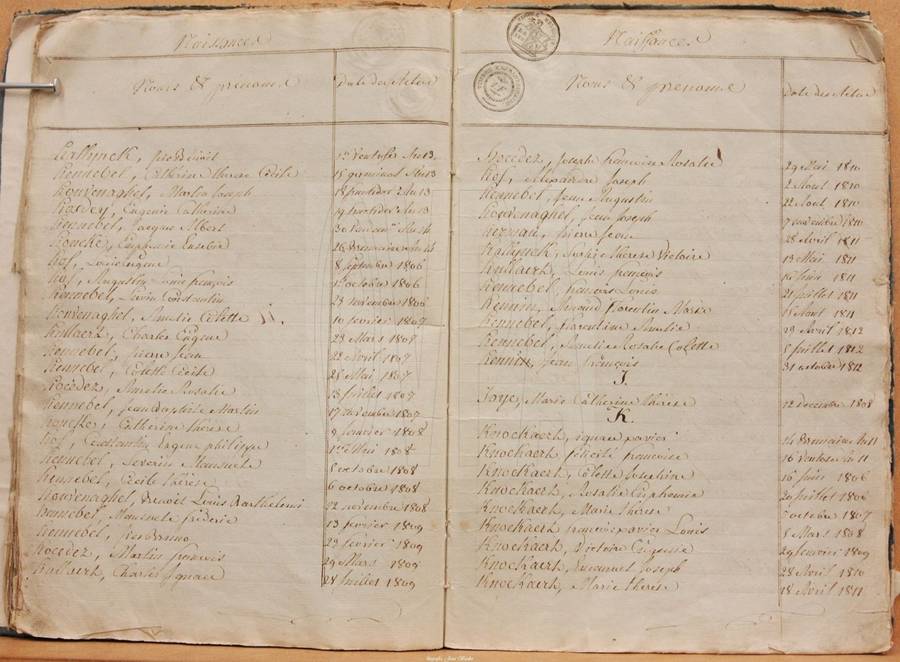 Naissances
Noms & prénoms
Date des Actes
Hennebel, Catherine Marie Cécile 15 germinal An 13
Houvenaghel, Martin Joseph 18 An 13
Eugenie Catherine 19 An 13
Hennebel, Jacques Albert 30 An 14
Euphranie Eusebie 26 Brumaire An 14
Hof, 8 Septembre 1806
Hof, Augustin Louis françois 1er octobre 1806
Hennebel, Livin Constantin 23 novembre 1806
Houvenaghel, Amelie Colette 10 fevrier 1807
Hullaert, Charles Eugene 23 Mars 1807
Hennebel, pierre Jean 22 Avril 1807
Hennebel, Colette Cécile 28 Mai 1807
Hocedez, Amelie Rosalie 13 Juillet 1807
Hennebel, jean Baptiste Martin 17 novembre 1807
Catherine thérese 9 janvier 1808
Hof, Constantin Eugene philippe 1er Mai 1808
Hennebel, Severin Mansuete 5 octobre 1808
Hennebel, Cécile thérese 6 octobre 1808
Houvenaghel, Benoit Louis Barthelemi 22 novembre 1808
Hennebel, Mansuete fréderic 13 fevrier 1809
Hennebel, 23 fevrier 1809
Hocedez, Martin françois 29 Mars 1809
Hullaert, Charles Ignace 28 Juillet 1809
Naissances
Noms & prénoms
Date des Actes
Hocedez, Joseph francoise Rosalie 29 Mai 1810
Hof, Alexandre Joseph 2 Aout 1810
Hennebel, Jean Augustin 22 Aout 1810
Houvenaghel, Jean Joseph 7 novembre 1810
pierre Jean 28 Avril 1811
Marie thérese Victoire 13 Mai 1811
Hullaert, Louis françois 16 Juin 1811
Hennebel, françois Louis 21 Juillet 1811
Hennin, Armand florentin Marie 15 Aout 1811
Hennebel, florentine Amelie 29 Avril 1812
Hennebel, Amelie Rosalie Colette 8 Juillet 1812
Hennin, Jean françois 31 octobre 1812
J.
Joye, Marie Catherine thérese 12 decembre 1808
K.
Knockaert, ignace xavier 14 An 11
Knockaert, félicité francoise 16 Ventose An 11
Knockaert, Colette Josephine 16 Juin 1806
Knockaert, Rosalie Euphemie 20 Juillet 1806
Knockaert, Marie thérese octobre 1807
Knockaert, françois xavier Louis 8 Mars 1808
Knockaert, Victoire 29 Janvier 1809
Knockaert, Emanuel Joseph 28 Avril 1810
Knockaert, Marie thérese 18 Avril 1811